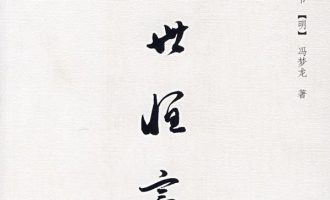 【明】冯梦龙 著
世恒言